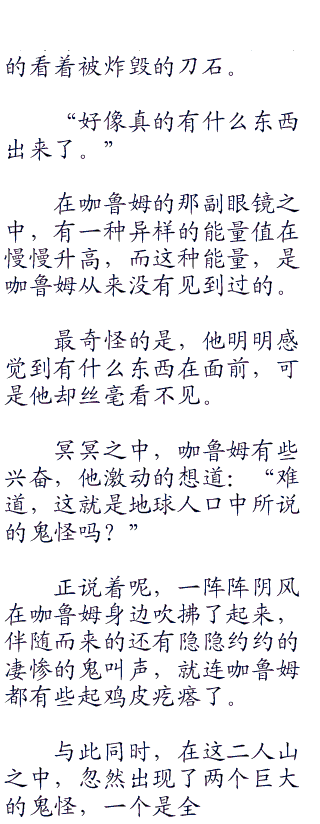 的看着被炸毁的刀石。
“好像真的有什么东西
出来了。”
在咖鲁姆的那副眼镜之
中，有一种异样的能量值在
慢慢升高，而这种能量，是
咖鲁姆从来没有见到过的。
最奇怪的是，他明明感
觉到有什么东西在面前，可
是他却丝毫看不见。
冥冥之中，咖鲁姆有些
兴奋，他激动的想道：“难
道，这就是地球人口中所说
的鬼怪吗？”
正说着呢，一阵阵阴风
在咖鲁姆身边吹拂了起来，
伴随而来的还有隐隐约约的
凄惨的鬼叫声，就连咖鲁姆
都有些起鸡皮疙瘩了。
与此同时，在这二人山
之中，忽然出现了两个巨大
的鬼怪，一个是全